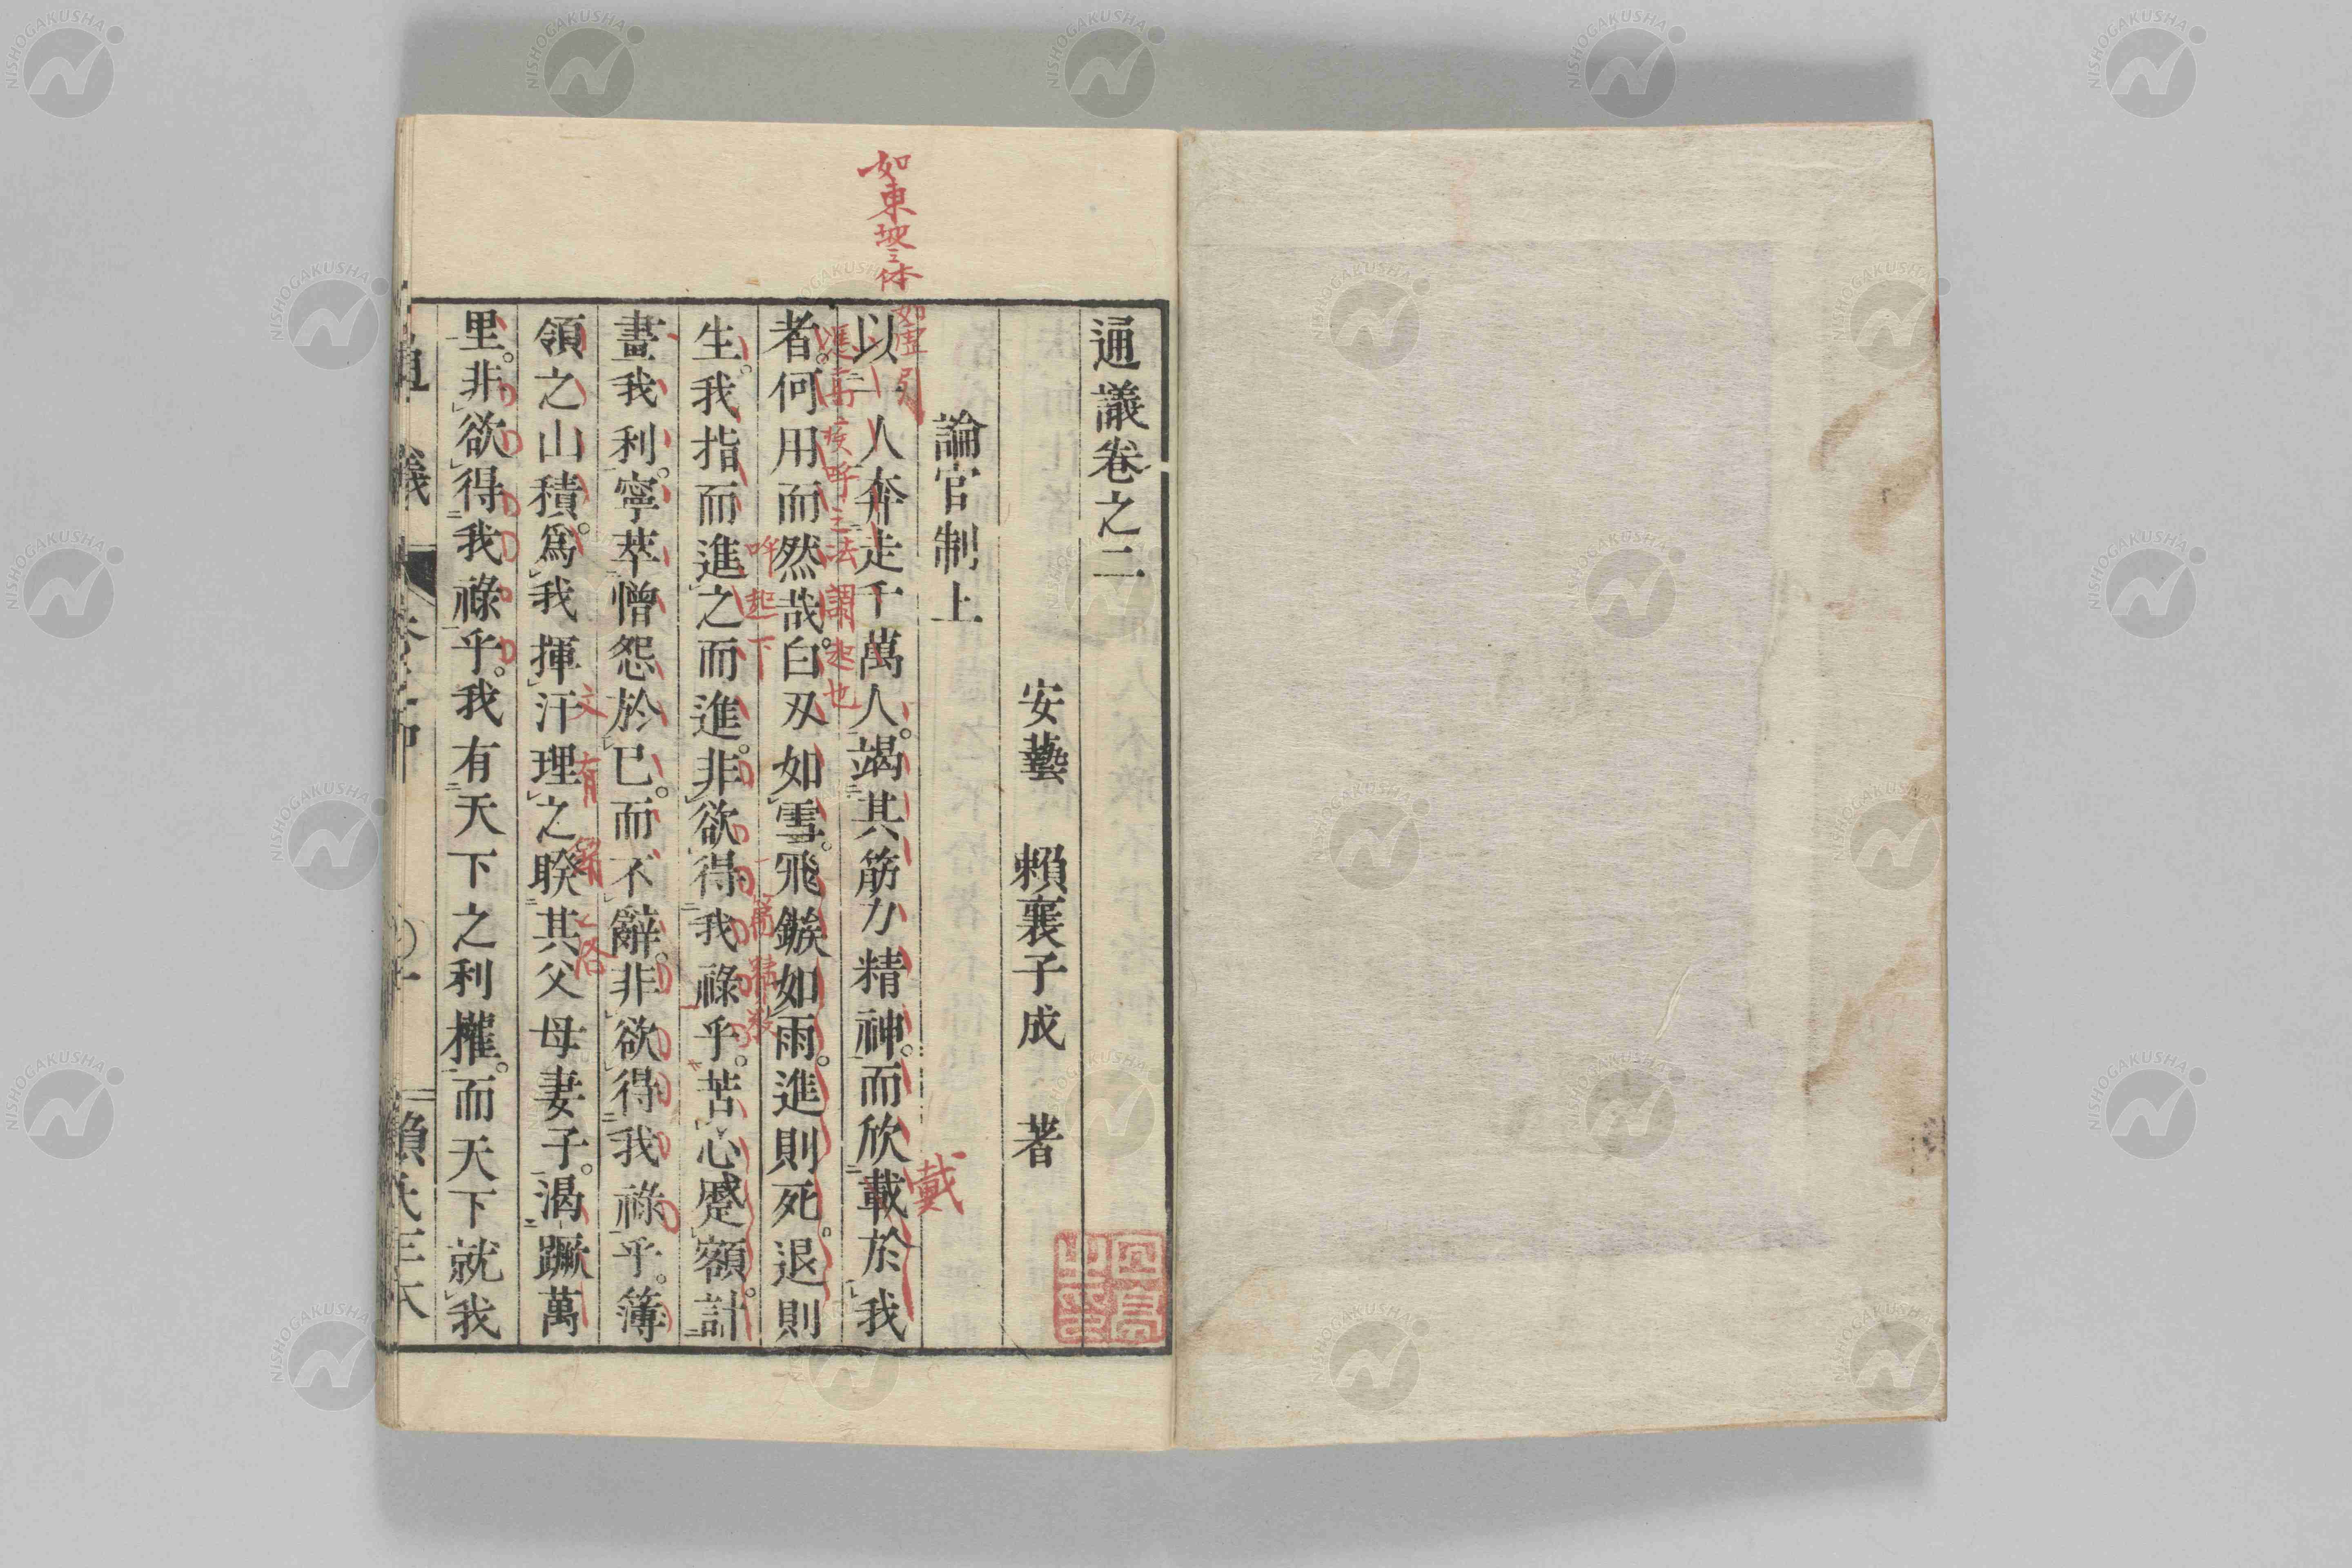 通議卷之二
安藝 賴襄子成 著
論官制上
以一人奔走千萬人。竭其筋力精神。而欣載於我
者。何用而然哉。白刃如雪。飛鏃如雨。進則死。退則
生。我指而進之而進。非欲得我祿乎。苦心蹙額。計
畫我利。寧萃憎怨於已。而不辭。非欲得我祿乎。簿
領之山積。爲我揮汗理之。睽其父母妻子。渴蹶萬
里。非欲得我祿乎。我有天下之利權。而天下就我
如東坡之体
如虛引
呼起下
文有
戴
NISHOGAKUSHA